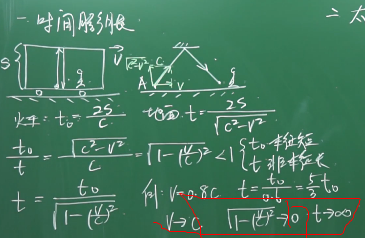 一 时间膨胀
二 太
S
v
√c²-v² C
A v
火车: t₀ = 2S/C 地面 t = 2S/√c²-v²
t₀/t = √c²-v²/C = √1-(v/c)² < 1 { t₀ 本征短
t 非本征长
t = t₀/√1-(v/c)² 例: V=0.8C t = t₀/0.6 = 5/3 t₀
V→C √1-(v/c)² → 0 t→∞